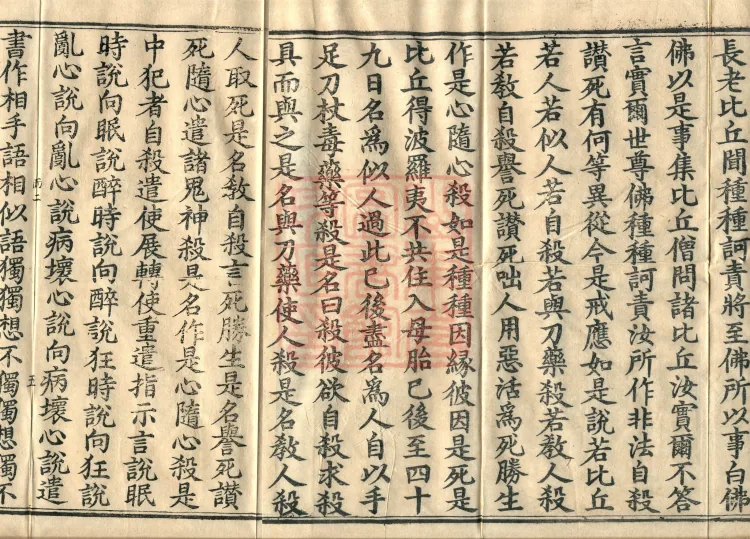 長老比丘聞種種訶責將至佛所以事白佛
佛以是事集比丘僧問諸比丘汝實爾不答
言實爾世尊佛種種訶責汝所作非法自殺
讃死有何等異從今是戒應如是說若比丘
若人若似人若自殺若與刀藥殺若教人殺
若教自殺譽死讃死咄人用惡活爲死勝生
作是心隨心殺如是種種因緣彼因是死是
比丘得波羅夷不共住入母胎已後至四十
九日名爲似人過此已後盡名爲人自以手
足刀杖毒藥等殺是名曰殺彼欲自殺求殺
具而與之是名與刀藥使人殺是名教人殺
人取死是名教自殺言死勝生是名譽死讃
死隨心遣諸鬼神殺是名作是心隨心殺是
中犯者自殺遣使展轉使重遣指示言說眠
時說向眠說醉時說向醉說狂時說向狂說
亂心說向亂心說病壞心說向病壞心說遣
書作相手語相似語獨獨想不獨獨想獨不
五